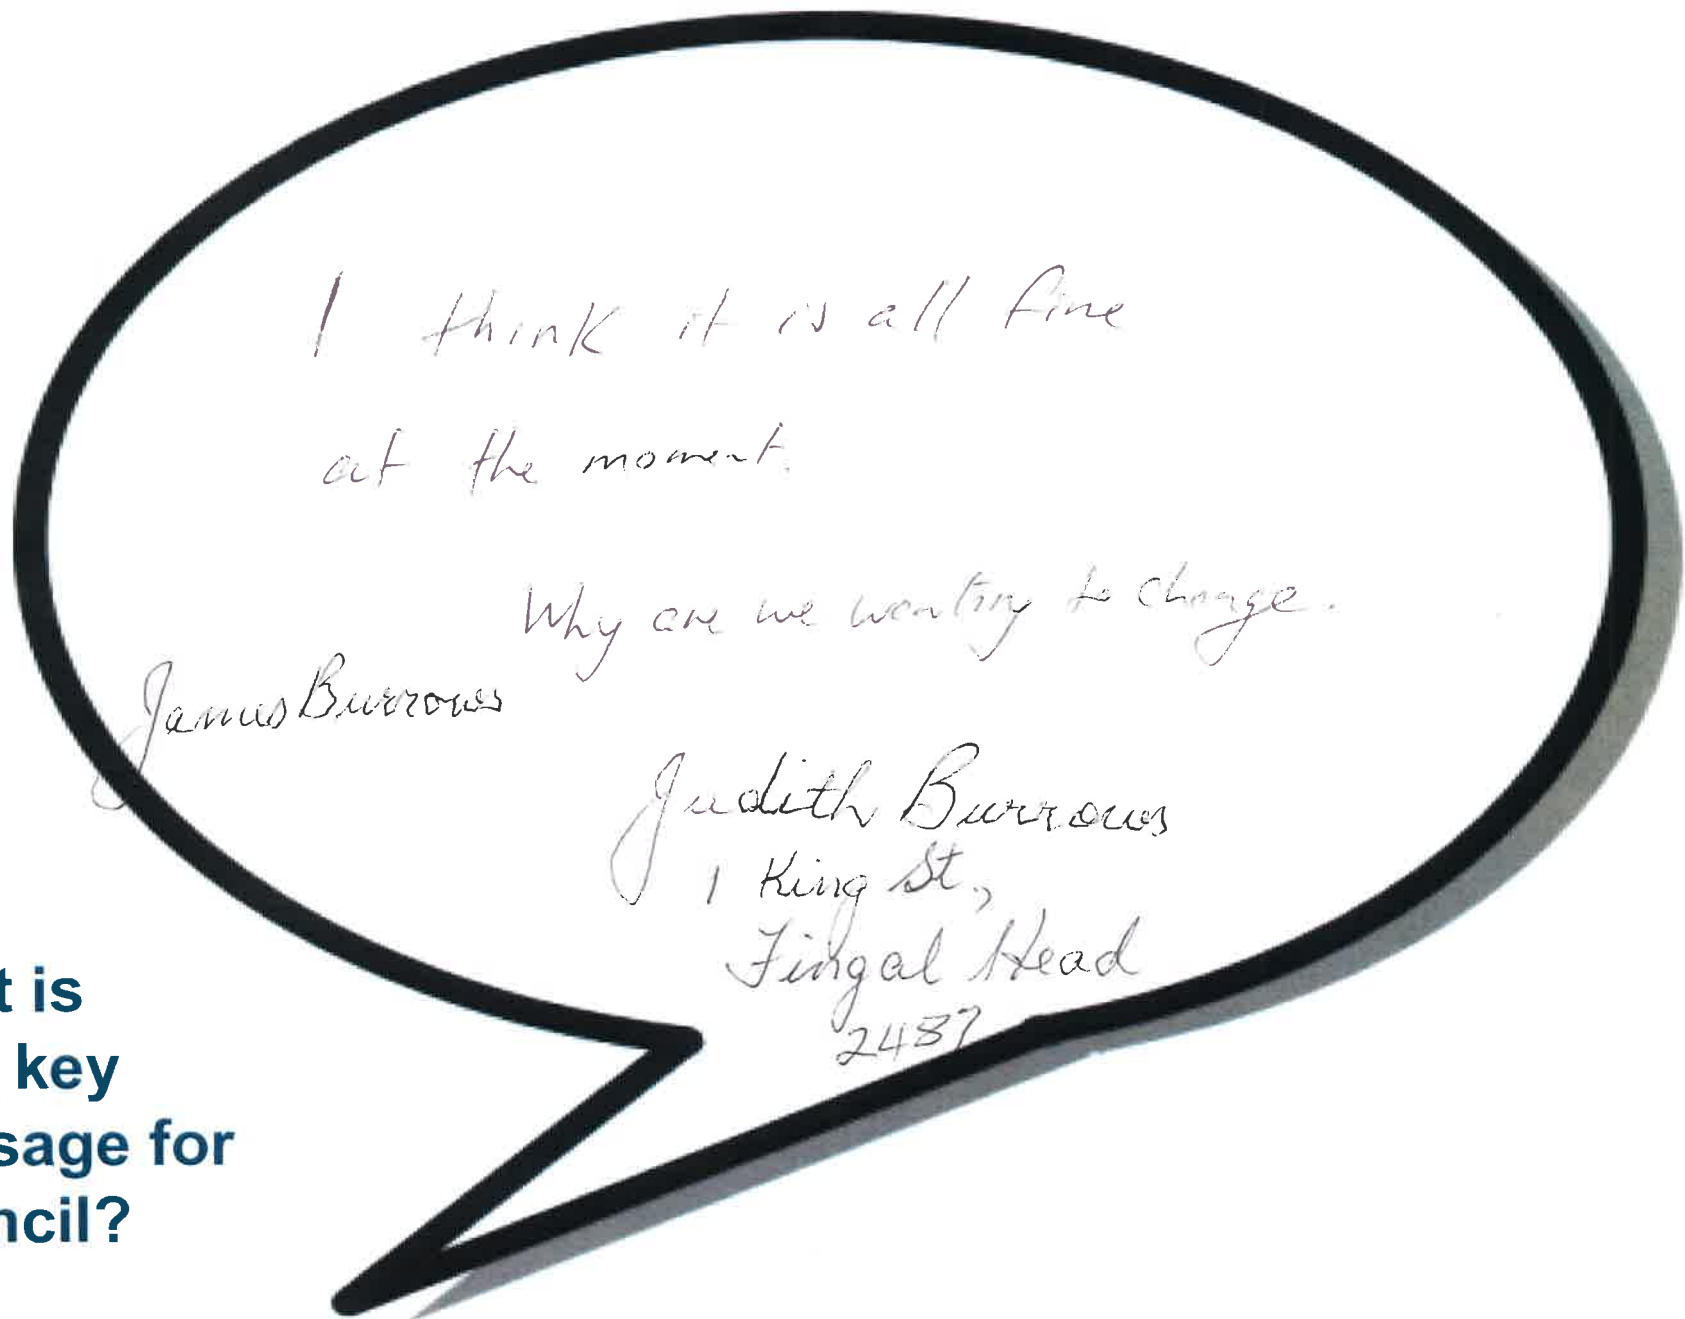 I think it is all fine
at the moment.
Why are we wanting to change.
James Burrows
Judith Burrows
1 King St.,
Fingal Head
2487
t is
key
sage for
ncil?